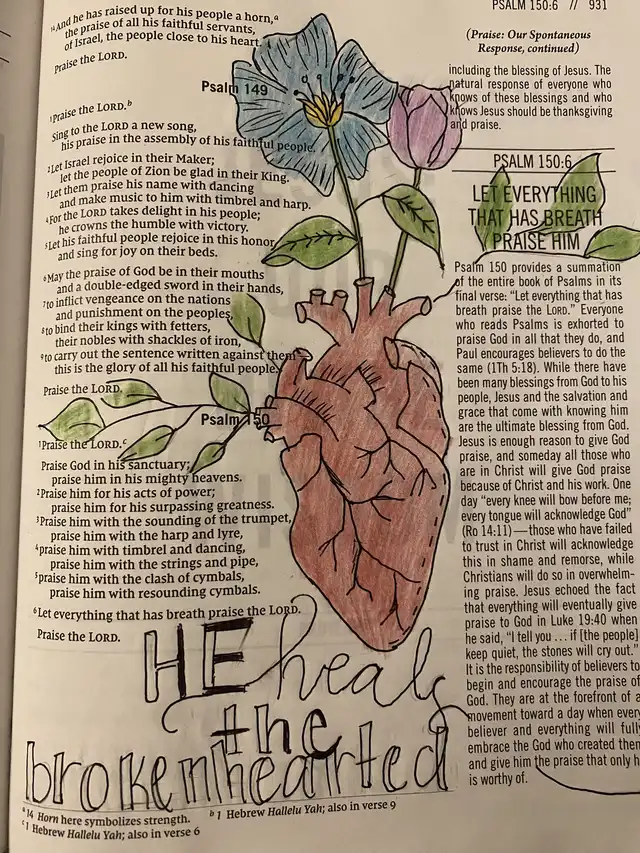 PSALM 150:6 // 931
¹⁴And he has raised up for his people a horn,ᵃ
the praise of all his faithful servants,
of Israel, the people close to his heart.
Praise the LORD.
Psalm 149
¹Praise the LORD.ᵇ
Sing to the LORD a new song,
his praise in the assembly of his faithful people.
²Let Israel rejoice in their Maker;
let the people of Zion be glad in their King.
³Let them praise his name with dancing
and make music to him with timbrel and harp.
⁴For the LORD takes delight in his people;
he crowns the humble with victory.
⁵Let his faithful people rejoice in this honor
and sing for joy on their beds.
⁶May the praise of God be in their mouths
and a double-edged sword in their hands,
⁷to inflict vengeance on the nations
and punishment on the peoples,
⁸to bind their kings with fetters,
their nobles with shackles of iron,
⁹to carry out the sentence written against them—
this is the glory of all his faithful people.
Praise the LORD.
Psalm 150
¹Praise the LORD.ᶜ
Praise God in his sanctuary;
praise him in his mighty heavens.
²Praise him for his acts of power;
praise him for his surpassing greatness.
³Praise him with the sounding of the trumpet,
praise him with the harp and lyre,
⁴praise him with timbrel and dancing,
praise him with the strings and pipe,
⁵praise him with the clash of cymbals,
praise him with resounding cymbals.
⁶Let everything that has breath praise the LORD.
Praise the LORD.
HE heals
the
brokenhearted
ᵃ14 Horn here symbolizes strength. ᵇ1 Hebrew Hallelu Yah; also in verse 9
ᶜ1 Hebrew Hallelu Yah; also in verse 6
(Praise: Our Spontaneous
Response, continued)
including the blessing of Jesus. The
natural response of everyone who
knows of these blessings and who
knows Jesus should be thanksgiving
and praise.
PSALM 150:6
LET EVERYTHING
THAT HAS BREATH
PRAISE HIM
Psalm 150 provides a summation
of the entire book of Psalms in its
final verse: “Let everything that has
breath praise the LORD.” Everyone
who reads Psalms is exhorted to
praise God in all that they do, and
Paul encourages believers to do the
same (1Th 5:18). While there have
been many blessings from God to his
people, Jesus and the salvation and
grace that come with knowing him
are the ultimate blessing from God.
Jesus is enough reason to give God
praise, and someday all those who
are in Christ will give God praise
because of Christ and his work. One
day “every knee will bow before me;
every tongue will acknowledge God”
(Ro 14:11)—those who have failed
to trust in Christ will acknowledge
this in shame and remorse, while
Christians will do so in overwhelm-
ing praise. Jesus echoed the fact
that everything will eventually give
praise to God in Luke 19:40 when
he said, “I tell you … if [the people]
keep quiet, the stones will cry out.”
It is the responsibility of believers to
begin and encourage the praise of
God. They are at the forefront of a
movement toward a day when every
believer and everything will fully
embrace the God who created them
and give him the praise that only he
is worthy of.